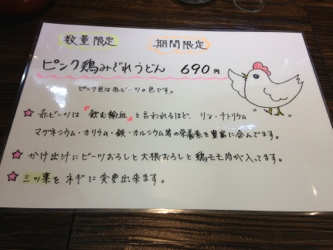 数量限定 期間限定
ピンク鶏みぞれうどん 690円
ピンク色は赤ビーツの色です。
☆ 赤ビーツは"飲む輸血"と言われるほど、リン・ナトリウム
マグネシウム・カリウム・鉄・カルシウム等の栄養素を豊富に含んでます。
☆ かけ出汁にビーツおろしと大根おろしと鶏モモ肉が入ってます。
☆ 三ツ葉をネギに変更出来ます。